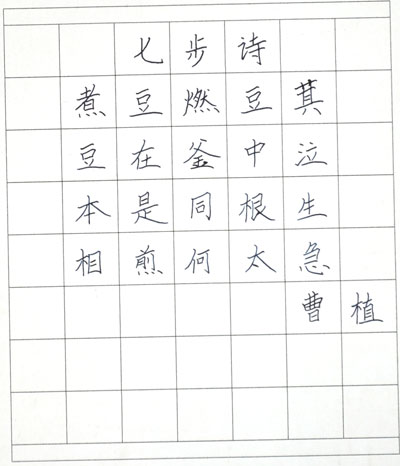 七步诗
煮豆燃豆萁
豆在釜中泣
本是同根生
相煎何太急
曹植